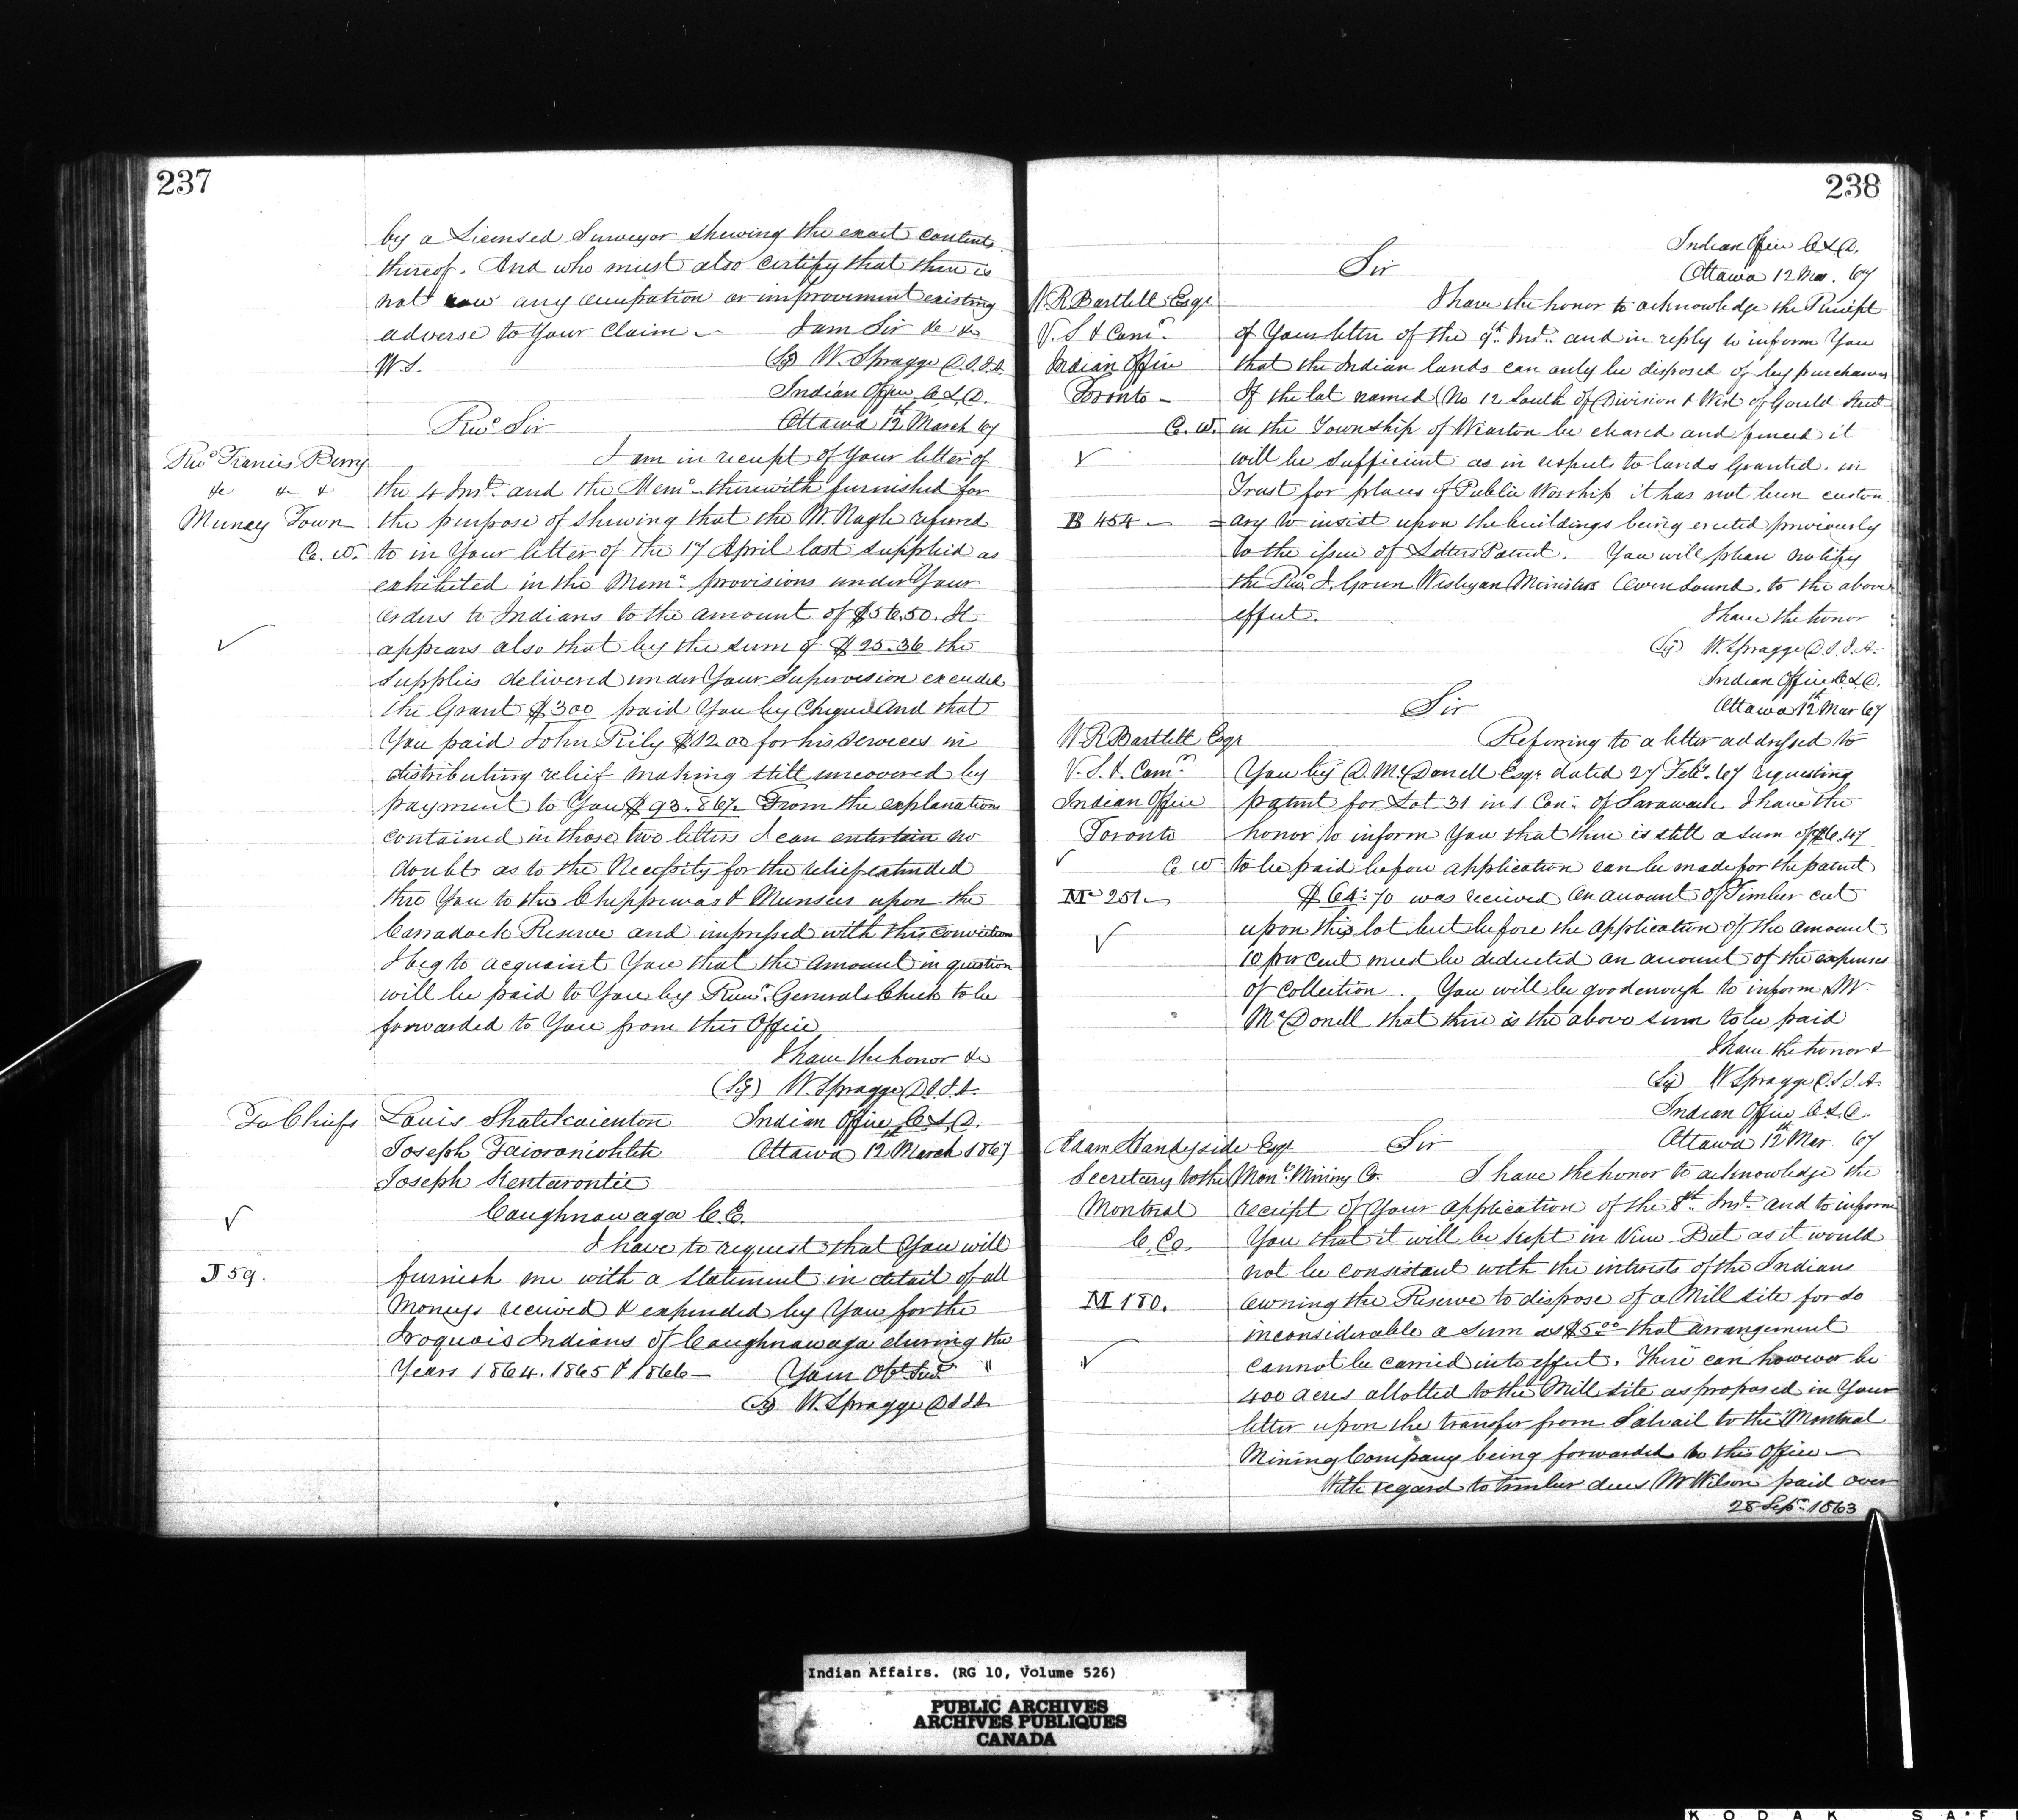 237
by a Licensed Surveyor shewing the exact contents
thereof. And who must also certify that there is
not any occupation or improvement existing
adverse to Your Claim — I am Sir &c &c
W.S. (Sg) W. Spragge D.S.I.A.
Indian Office C.L.D.
Revd Sir Ottawa 12th March 67
Revd Francis Berry I am in receipt of Your letter of
&c &c & the 4 Inst. and the Memo therewith furnished for
Muncey Town the purpose of shewing that the Mr. Nagle referred
C. W. to in Your letter of the 17 April last supplied as
exhibited in the Memo provisions under Your
orders to Indians to the amount of $56.50. It
appears also that by the sum of $25.36 the
supplies delivered under Your supervision exceeded
the Grant $300 paid You by Cheque and that
You paid John Rily $12.00 for his services in
distributing relief making still uncovered by
payment to You $93.86½. From the explanations
contained in those two letters I can entertain no
doubt as to the Necessity for the relief extended
thro You to the Chippewas & Munsees upon the
Carradock Reserve and impressed with this conviction
I beg to acquaint You that the amount in question
will be paid to You by Recr. Generals Check to be
forwarded to You from this Office
I have the honor &c
(Sg) W. Spragge D.S.I.A.
To Chiefs Louis Shatekaienton Indian Office C.L.D.
Joseph Taioroniohteh Ottawa 12th March 1867
Joseph Kentarontie
Caughnawaga C.E.
I have to request that You will
J 59. furnish me with a statement in detail of all
Moneys received & expended by You for the
Iroquois Indians of Caughnawaga during the
Years 1864. 1865 & 1866 — Your Obt. Servt "
(Sg) W. Spragge DSIA
238
Indian Office C.L.D.
Sir Ottawa 12 Mar. 67
W.R. Bartlett Esqr I have the honor to acknowledge the Receipt
V. S. & Comr. of Your letter of the 9th Inst. and in reply to inform You
Indian Office that the Indian lands can only be disposed of by purchase
Toronto — If the lot named (No 12 South of Division & West of Gould Street
C. W. in the Township of Wiarton be cleared and fenced it
will be sufficient as in respect to lands Granted in
Trust for places of Public Worship it has not been custom
B 454 — =ary to insist upon the buildings being erected previously
to the issue of Letters Patent. You will please notify
the Revd. Wesleyan Minister Owen Sound, to the above
effect. I have the honor
(Sg) W. Spragge D.S.I.A.
Indian Office C.L.D.
Sir Ottawa 12th Mar 67
W.R. Bartlett Esqr Referring to a letter addressed to
V. S. & Comr. You by D. McDonell Esqr dated 27 Feby. 67 requesting
Indian Office patent for Lot 31 in 1 Con. of Sarawack I have the
Toronto honor to inform You that there is still a sum of
C W to be paid before application can be made for the patent
Mc 251 — $64.70 was received on account of Timber cut
upon this lot but before the application of the amount
10 per cent must be deducted on account of the expenses
of Collection. You will be good enough to inform Mr
McDonell that there is the above sum to be paid
I have the honor &
(Sg) W Spragge D.S.I.A.
Indian Office C.L.D.
Adam Handyside Esqr Sir Ottawa 12th Mar. 67
Secretary to the Monl. Mining Co. I have the honor to acknowledge the
Montreal receipt of Your application of the 8th. Inst. and to inform
C. E. You that it will be kept in View. But as it would
not be consistent with the interests of the Indians
M 180. owning the Reserve to dispose of a Mill site for so
inconsiderable a sum as $5.00 that arrangement
cannot be carried into effect. There can however be
400 acres allotted to the Mill site as proposed in Your
letter upon the transfer from to the Montreal
Mining Company being forwarded to this Office —
With regard to timber dues Mr Wilson paid over
28 Sepr. 1863
Indian Affairs. (RG 10, Volume 526)
PUBLIC ARCHIVES
ARCHIVES PUBLIQUES
CANADA
KODAK SAF